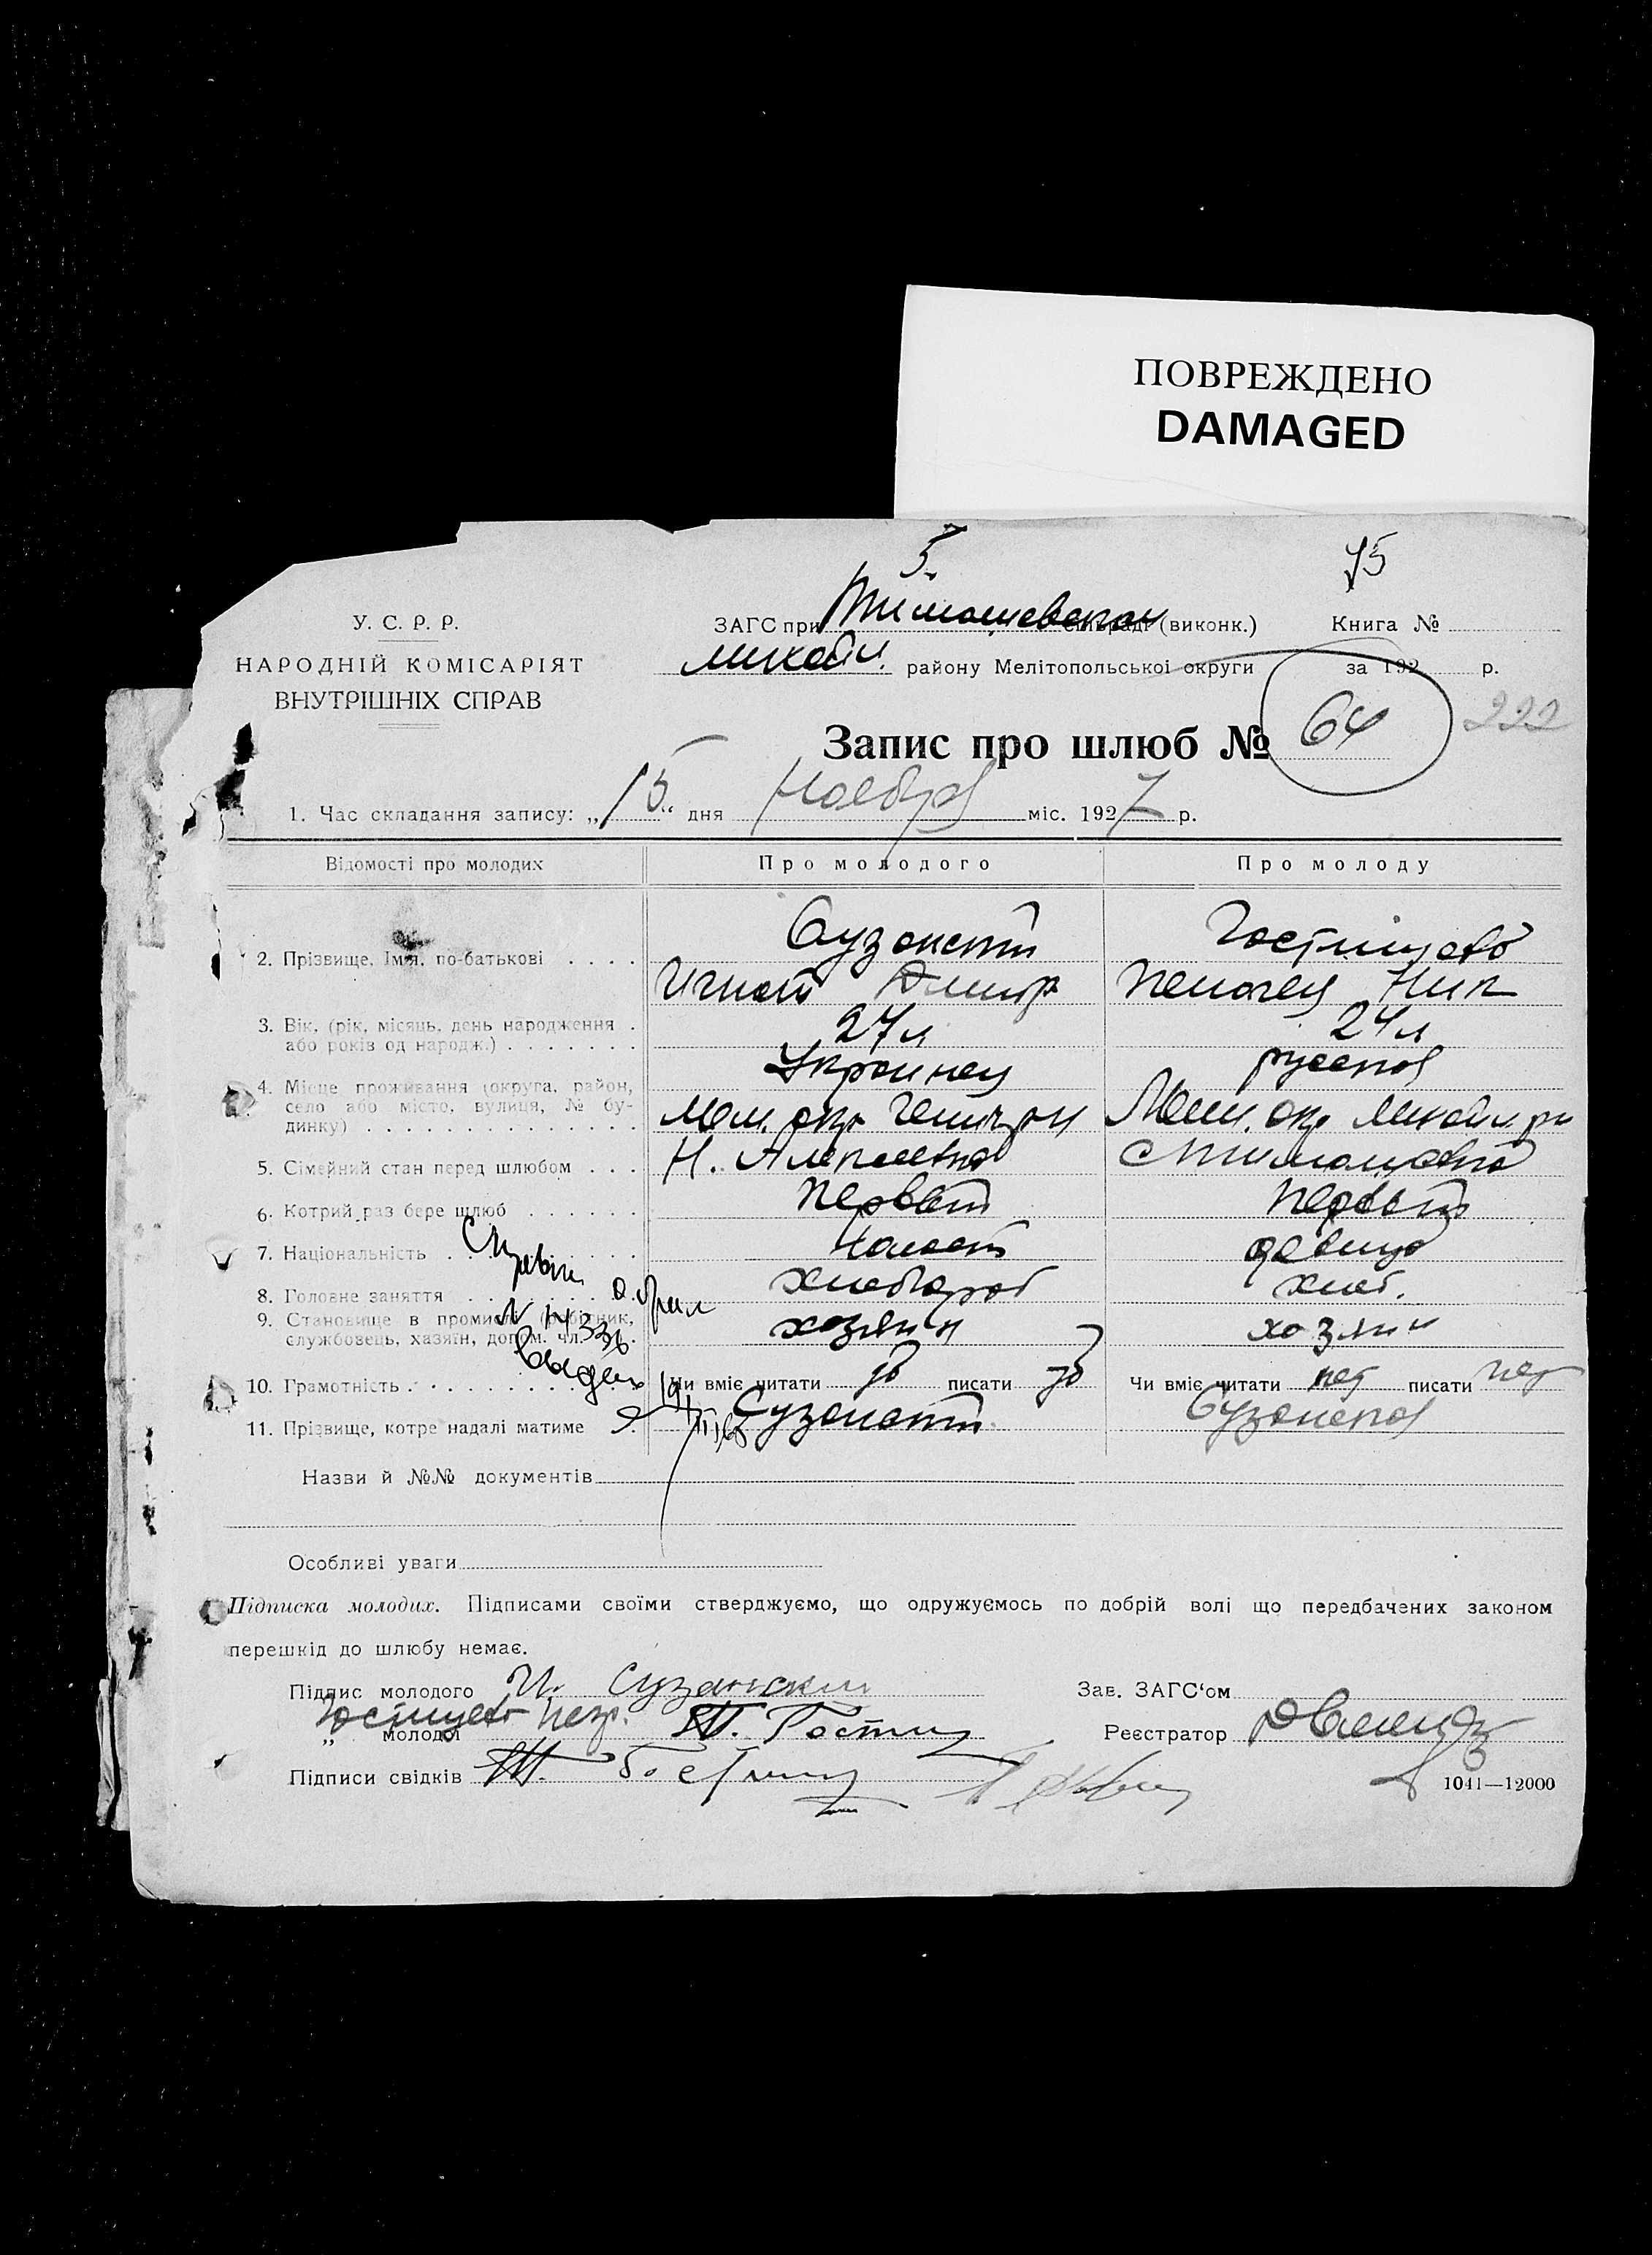 ПОВРЕЖДЕНО
DAMAGED
5.
75
У. С. Р. Р.
НАРОДНІЙ КОМІСАРІЯТ
ВНУТРІШНІХ СПРАВ
ЗАГС при Тимошевском сільраді (виконк.)
Книга №
Михайл. району Мелітопольської округи
за 192 р.
Запис про шлюб № 64
222
1. Час складання запису: „15“ дня Ноября міс. 1927 р.
Відомості про молодих
Про молодого
Про молоду
2. Прізвище, Ім'я, по-батькові
Сузанский
Гостищева
Игнат Дмитр
Пелагея Ник
3. Вік, (рік, місяць, день народження
або років од народж.)
27 л
24 л
Украинец
русская
4. Місце проживання (округа, район,
село або місто, вулиця, № бу-
динку)
Мел. окр
Мел. окр Михайл. рн
5. Сімейний стан перед шлюбом
Н. Алексеевка
С Тимошевка
6. Котрий раз бере шлюб
Первый
Первый
7. Національність
Холост
девица
8. Головне заняття
хлебороб
хлеб.
9. Становище в промислі (робітник,
службовець, хазяїн, допом. чл.
хозяин
хозяин
10. Грамотність
Чи вміє читати да писати да
Чи вміє читати нет писати нет
11. Прізвище, котре надалі матиме
Сузанский
Сузанская
Назви й №№ документів
Особливі уваги
Підписка молодих. Підписами своїми стверджуємо, що одружуємось по добрій волі що передбачених законом
перешкід до шлюбу немає.
Підпис молодого И. Сузанский
Зав. ЗАГС‘ом
„ молодої Гостищева негр. Т. Гостищ
Реєстратор
Підписи свідків
1041—12000